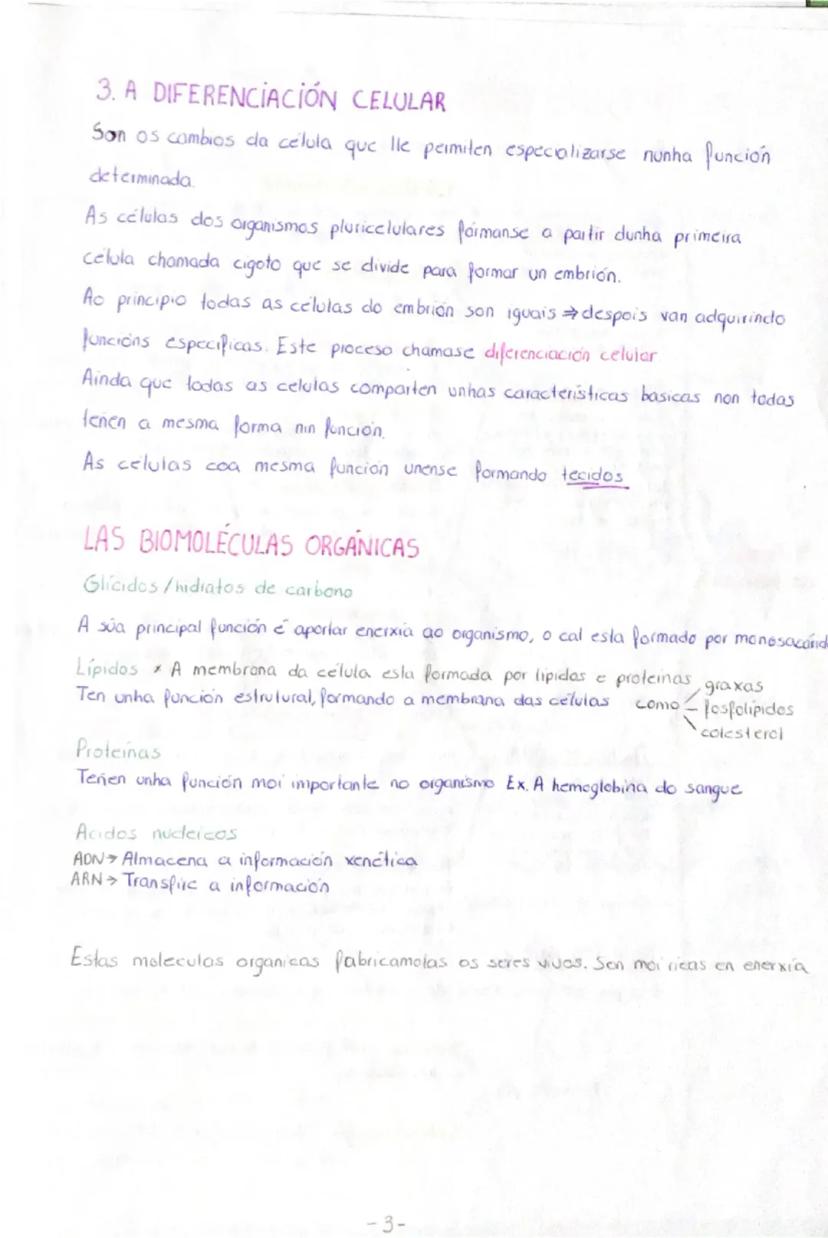 3. A DIFERENCIACIÓN CELULAR
Son os cambios da célula que lle permiten especializarse nunha función
determinada.
As células dos organismos pluricelulares fórmanse a partir dunha primeira
célula chamada cigoto que se divide para formar un embrión.
Ao principio todas as células do embrión son iguais ⇒ despois van adquirindo
funcións específicas. Este proceso chamase diferenciación celular
Ainda que todas as celulas comparten unhas características basicas non todas
teñen a mesma forma nin función.
As células coa mesma función unense formando tecidos
LAS BIOMOLÉCULAS ORGÁNICAS
Glícidos/hidratos de carbono
A súa principal función é aportar enerxía ao organismo, o cal esta formado por
Lípidos * A membrana da célula esta formada por lipidos e proteinas
Ten unha función estrutural, formando a membrana das células como graxas
fosfolípidos
colesterol
Proteínas
Teñen unha función moi importante no organismo Ex. A hemoglobina do sangue
Acidos nucleicos
ADN → Almacena a información xenética
ARN → Transfire a información
Estas moleculas organicas fabricamolas os seres vivos. Son moi ricas en enerxía
-3-